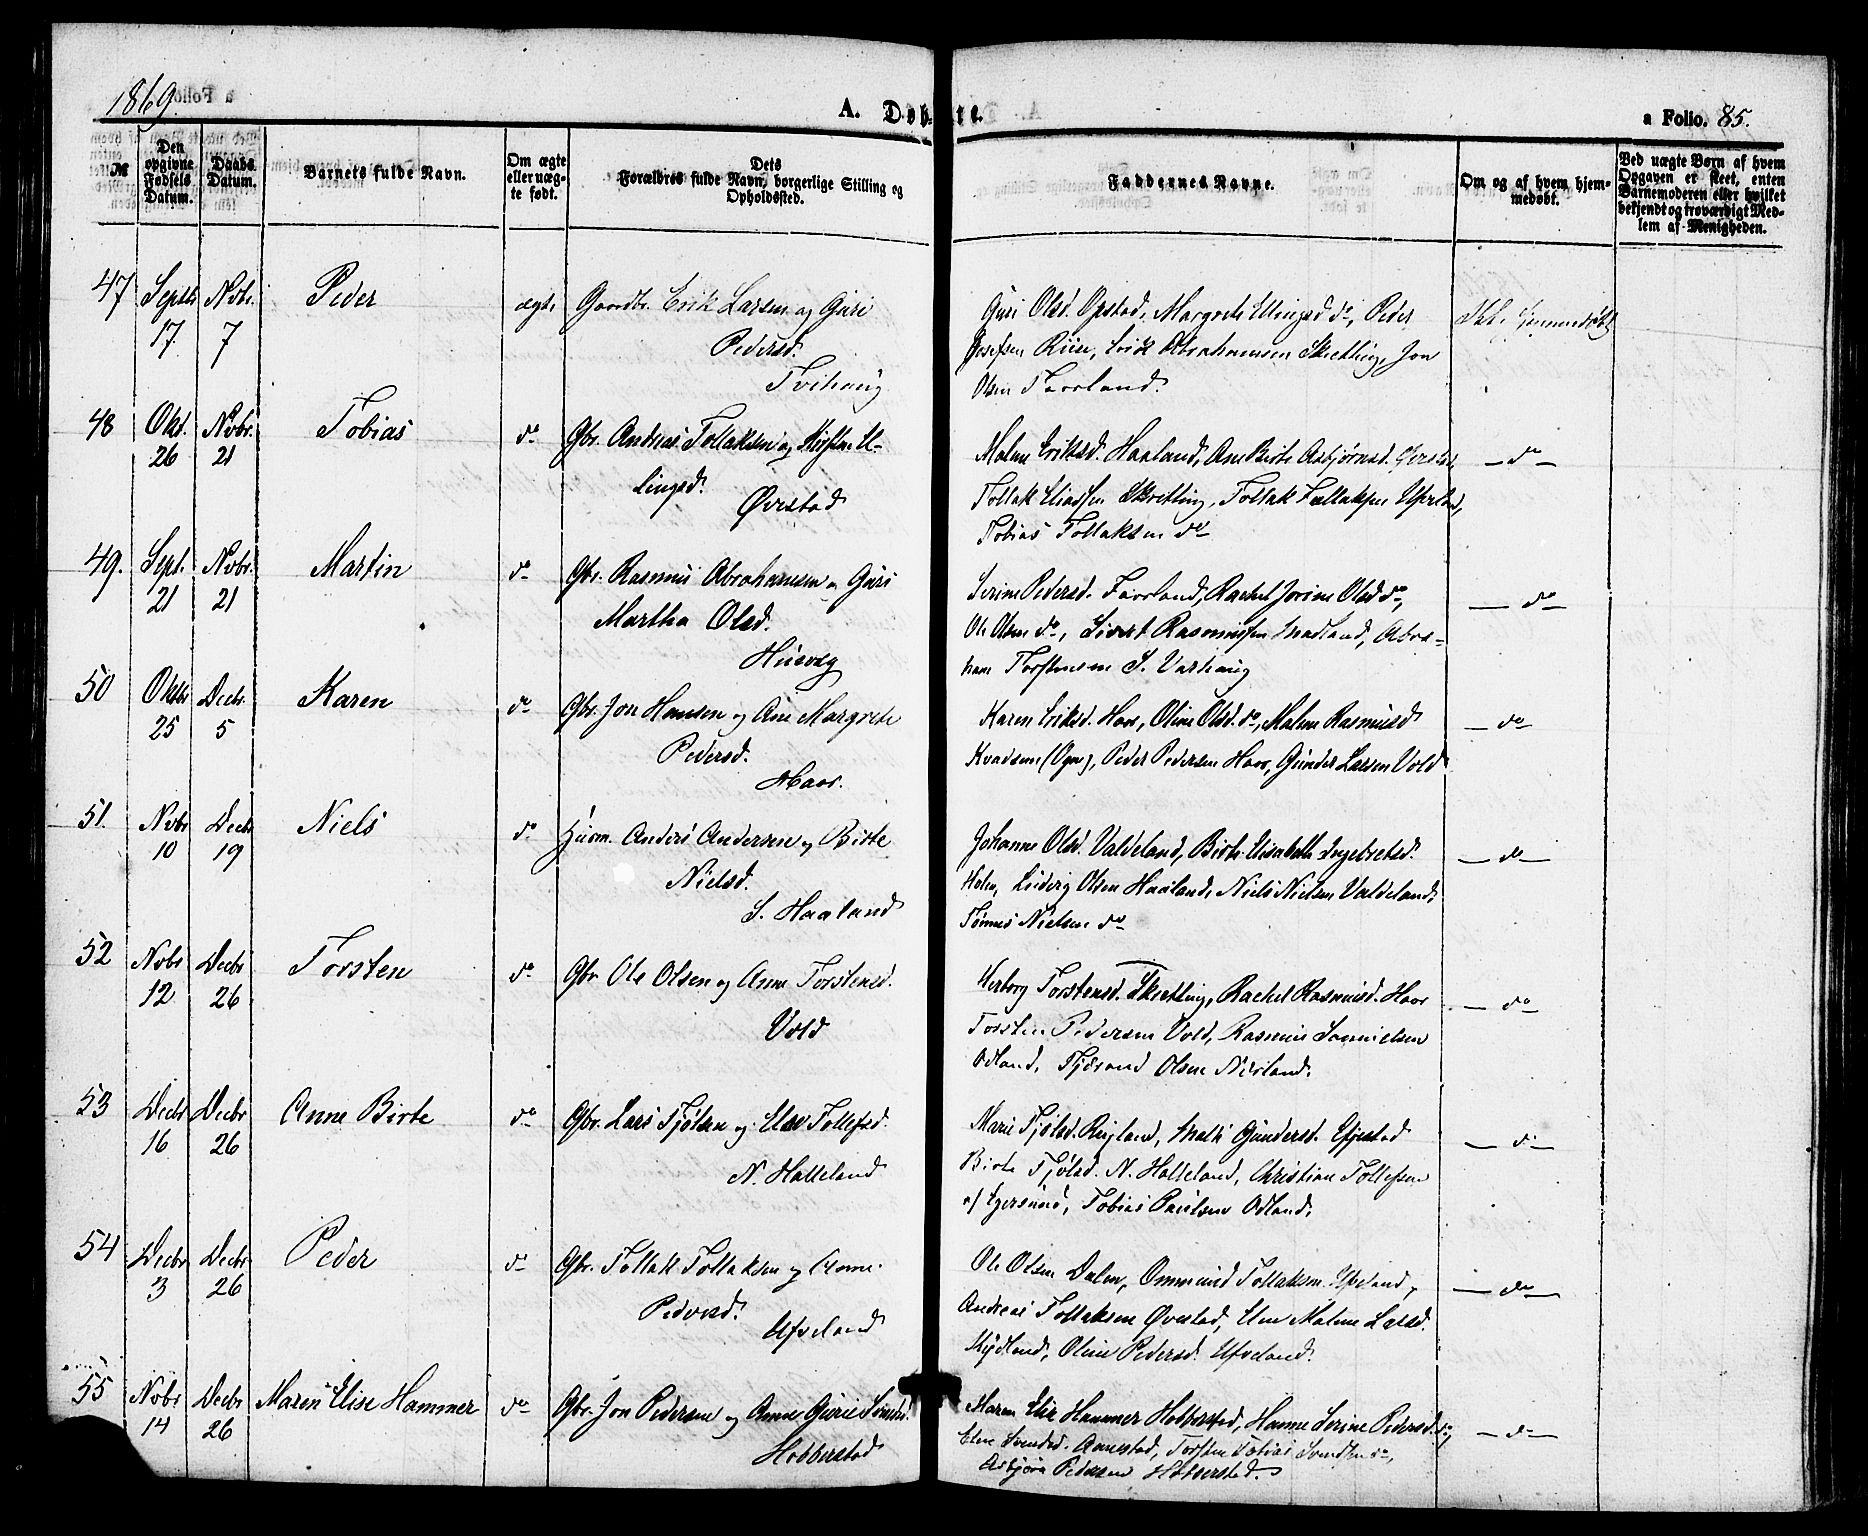 1869.
A. Døbte.
a Folio. 85.
№
Den opgivne Fødsels Datum.
Daabs Datum.
Barnets fulde Navn.
Om ægte eller uægte født.
Dets Forældres fulde Navn, borgerlige Stilling og Opholdssted.
Faddernes Navne.
Om og af hvem hjemmedøbt.
Ved uægte Børn af hvem Opgaven er skeet, enten Barnemoderen eller hvilket bekjendt og troværdigt Medlem af Menigheden.
47 Septr 17. Novbr. 7 Peder ægte Gaardbr. Erik Larsen og Guri
Pedersd.
Tvihaug
Guri Olsd. Opstad, Margrete Ellingsd do, Peder
Josefsen Riise, Erik Abrahamsen Skretting, Jon
Olsen Taarland.
48 Okt. 26 Novbr. 21 Tobias do Gbr. Andreas Tollaksen og Kirstine El-
lingsd.
Øvrstad
Malene Eriksd. Haaland, Ane Birte Asbjørnsd.
Tollak Eliassen Skretting, Tollak Tollaksen
Tobias Tollaksen do
— do —
49. Sept. 21 Novbr. 21 Martin do Gbr. Rasmus Abrahamsen og Guri
Martha Olsd.
Husvæg
Serine Pedersd. Taarland, Rachel Jorine Olsd do,
Ole Olsen do, Sivert Rasmussen Madland, Abra-
ham Torstensen S. Varhaug
— do —
50 Oktbr 25 Decbr. 5 Karen do Gbr. Jon Hansen og Ane Margrete
Pedersd.
Haar.
Karen Eriksd. Haar, Oline Olsd. do, Malene Rasmusd
(Ogne), Peder Pedersen Haar, Gunder Larsen Vold
— do
51. Novbr 10 Decbr 19 Niels do Husm. Anders Andersen og Birte
Nielsd.
S. Haaland
Johanne Olsd. Valdeland, Birte Elisabeth Ingebretsd.
Holen, Ludvig Olsen Haaland, Niels Nielsen Valdeland,
Tønnes Nielsen do
— do —
52 Novbr 12 Decbr 26 Torsten do Gbr Ole Olsen og Anne Torstensd.
Vold
Herborg Torstensd. Skretting, Rachel Rasmusd. Haar
Torsten Pedersen Vold, Rasmus Samuelsen
Odland, Tjørand Olsen Nærland.
— do —
53 Decbr 16 Decbr 26 Anne Birte do Gbr. Lars Tjølsen og Else Tollefsd.
N. Halleland
Marie Tjølsd. Rugland, Malli Gundersd.
Birte Tjølsd. N. Halleland, Christian Tollefsen
af Egersund, Tobias Paulsen Odland.
— do —
54 Decbr 3 Decbr 26 Peder do Gbr. Tollak Tollaksen og Anne
Pedersd.
Ufseland
Ole Olsen Dalen, Ommund Tollaksen Ufseland,
Andreas Tollaksen Øvrstad, Elen Malene Larsd.
Kydland, Oline Pedersd. Ufseland.
— do —
55 Novbr 14 Decbr 26 Maren Elise Hammer do Gbr. Jon Pedersen og Anne Gurie Svendsd.
Hobberstad
Maren Elise Hammer Hobberstad, Hanne Serine Pedersd. do,
Elen Svendsd. Aanestad, Torsten Tobias Svendsen do,
Asbjørn Pedersen Hobberstad.
— do —